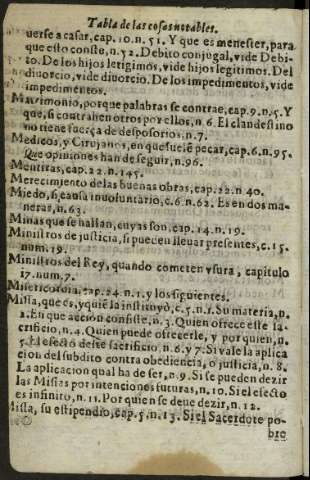 Tabla de las cosas notables.
uerse a casar, cap. 10. n. 51. Y que es menester, para
que esto conste, n. 52. Debito conjugal, vide Debi-
to. De los hijos letigimos, vide hijos legitimos. Del
diuorcio, vide diuorcio. De los impedimentos, vide
impedimentos.
Matrimonio, porque palabras se contrae, cap. 9. n. 5. Y
que, si contrahen otros por ellos, n. 6. El clandestino
no tiene fuerça de desposorios, n. 7.
Medicos, y Cirujanos, en que suelē pecar, cap. 6. n. 95.
Que opiniones han de seguir, n. 96.
Mentiras, cap. 22. n. 145.
Merecimiento de las buenas obras, cap. 22. n. 40.
Miedo, si causa inuoluntario, c. 6. n. 62. Es en dos ma-
neras, n. 63.
Minas que se hallan, cuyas son, cap. 14. n. 19.
Ministros de justicia, si pueden lleuar presentes, c. 15.
num. 19.
Ministros del Rey, quando cometen vsura, capitulo
17. num. 7.
Misericordia, cap. 24. n. 1. y los siguientes.
Missa, que es, y quiē la instituyò, c. 5. n. 1. Su materia, n.
2. En que accion consiste, n. 3. Quien ofrece este sa-
crificio, n. 4. Quien puede ofrecerle, y por quien, n.
5. El efecto deste sacrificio, n. 6. y 7. Si vale la aplica
cion del subdito contra obediencia, o justicia, n. 8.
La applicacion qual ha de ser, n. 9. Si se pueden dezir
las Missas por intenciones futuras, n. 10. Si el efecto
es infinito, n. 11. Por quien se deue dezir, n. 12.
Missa, su estipendio, cap. 5. n. 13. Si el Sacerdote po-
bre